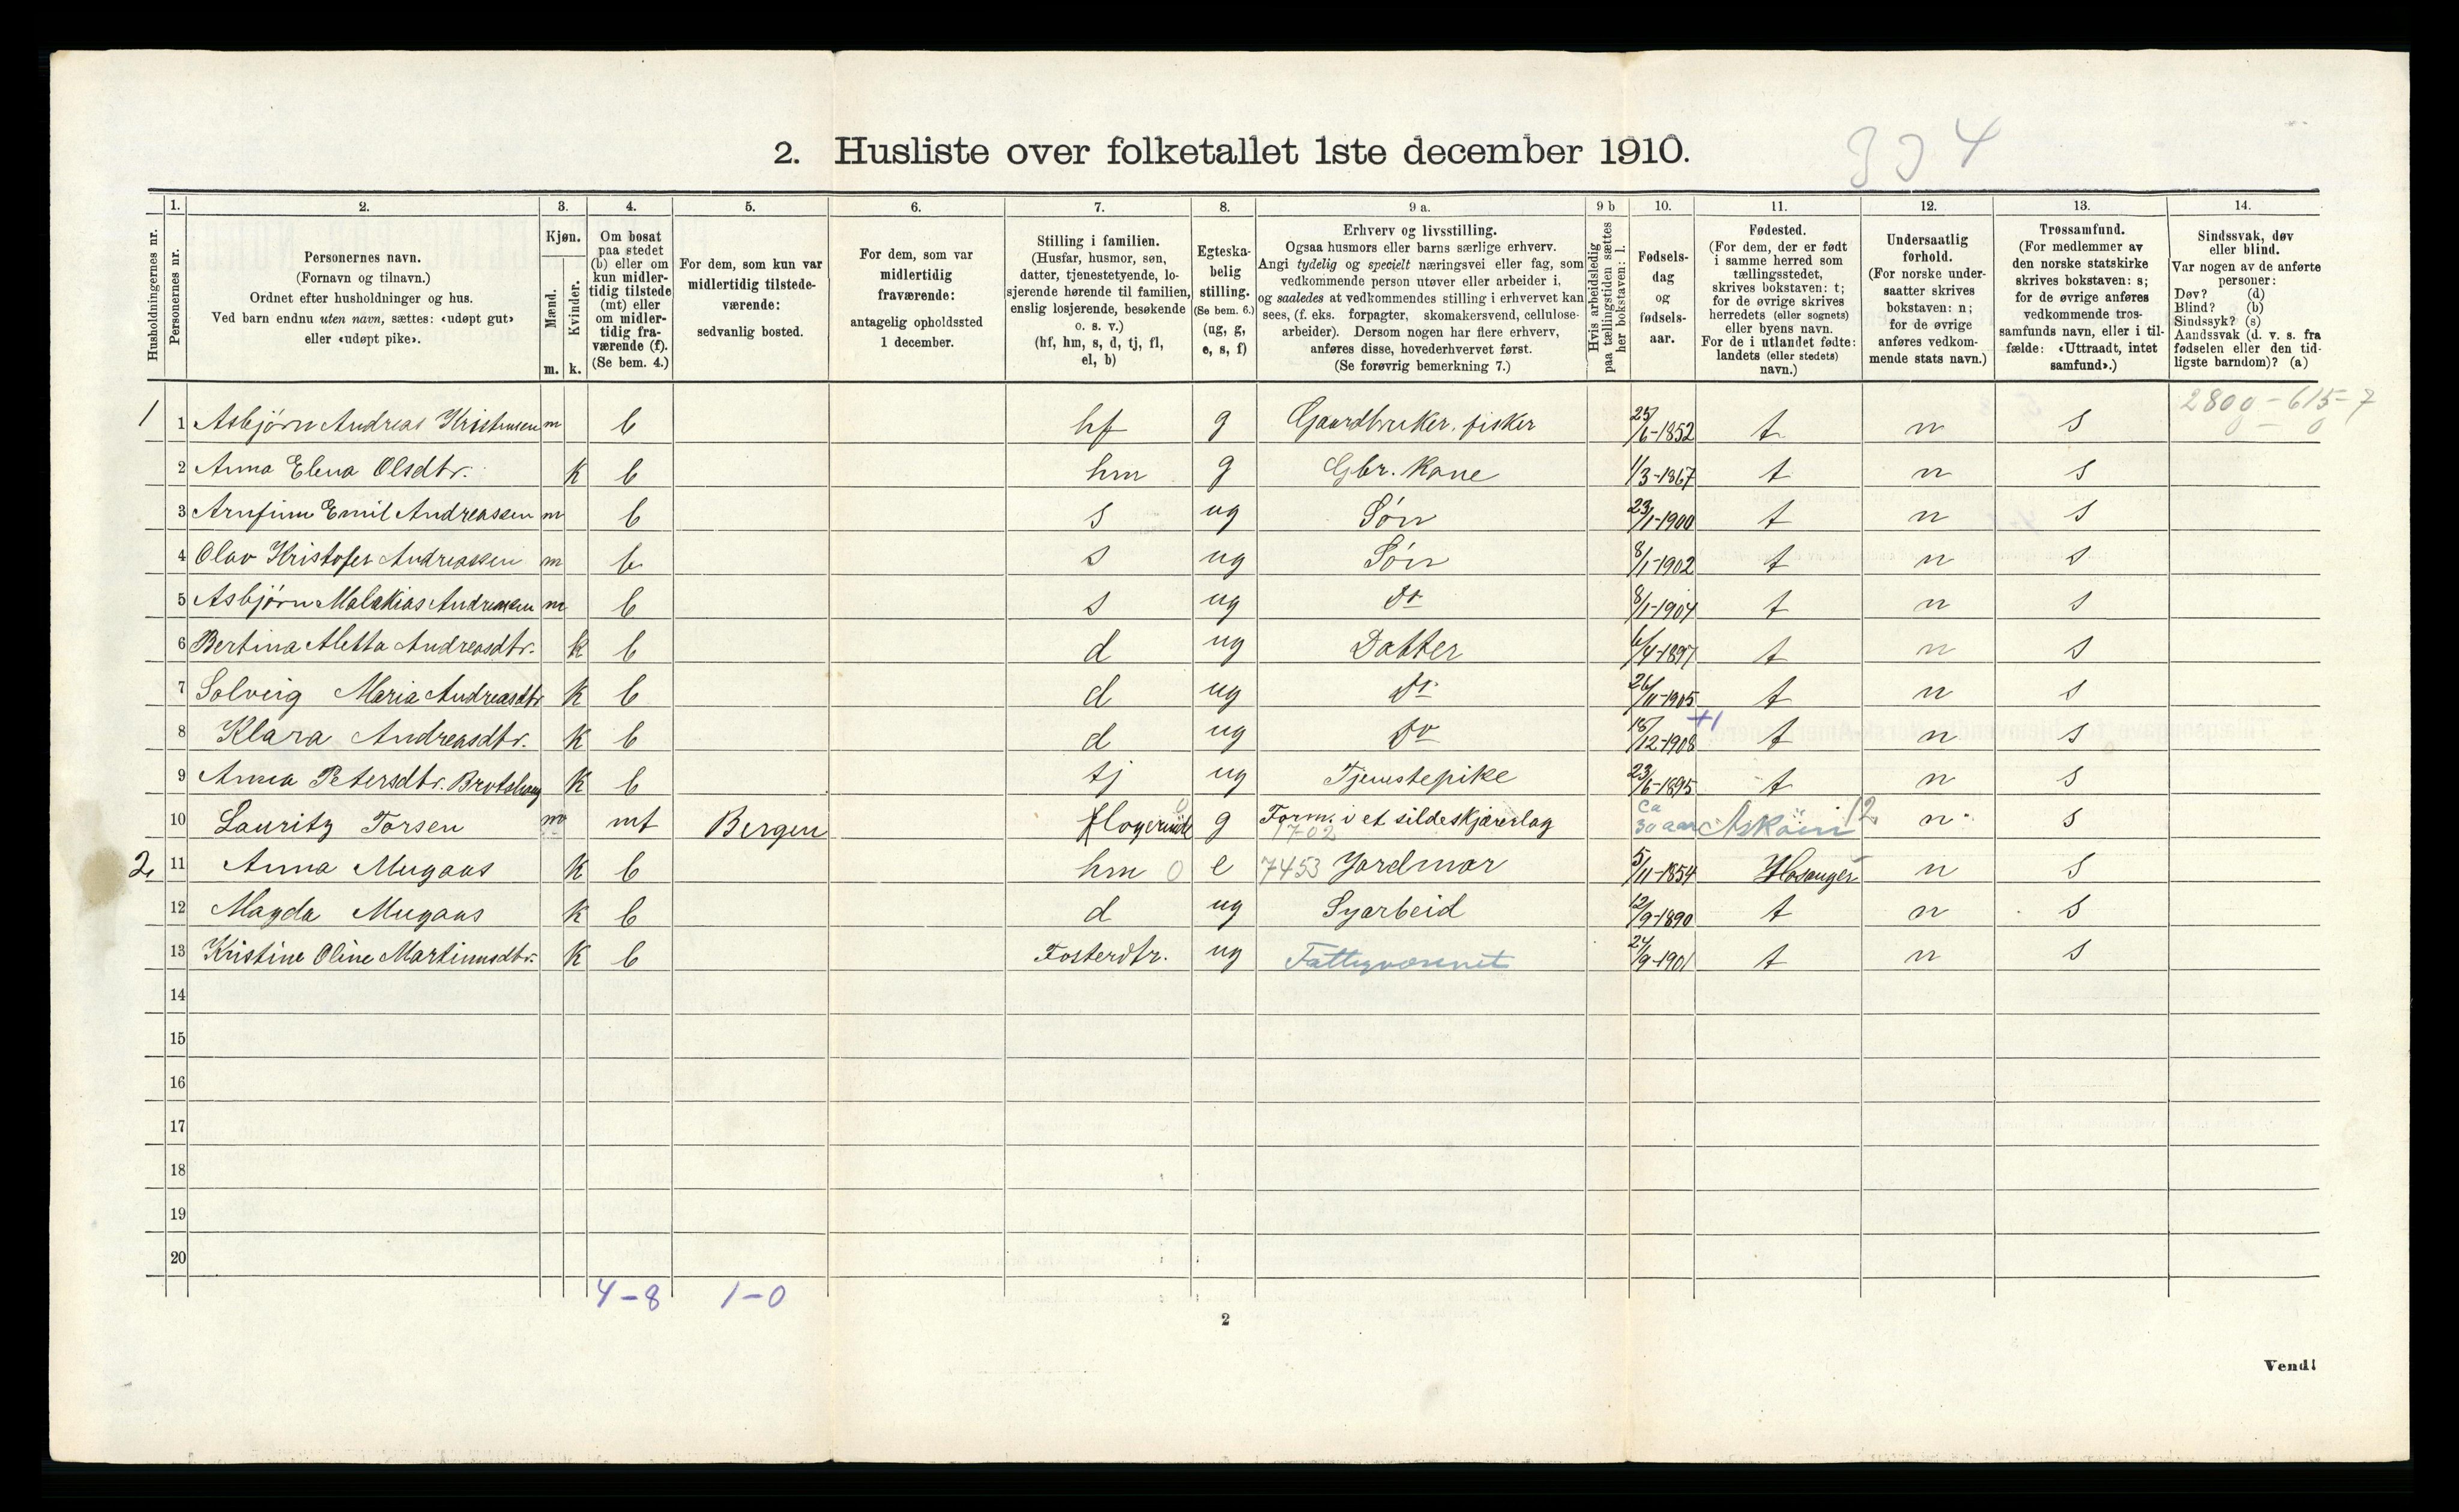 2. Husliste over folketallet 1ste december 1910.
334
Husholdningernes nr.
1. Personernes nr.
2. Personernes navn. (Fornavn og tilnavn.) Ordnet efter husholdninger og hus. Ved barn endnu uten navn, sættes: «udøpt gut» eller «udøpt pike».
3. Kjøn. Mænd. m. Kvinder. k.
4. Om bosat paa stedet (b) eller om kun midler-tidig tilstede (mt) eller om midler-tidig fra-værende (f). (Se bem. 4.)
5. For dem, som kun var midlertidig tilstede-værende: sedvanlig bosted.
6. For dem, som var midlertidig fraværende: antagelig opholdssted 1 december.
7. Stilling i familien. (Husfar, husmor, søn, datter, tjenestetyende, lo-sjerende hørende til familien, enslig losjerende, besøkende o. s. v.) (hf, hm, s, d, tj, fl, el, b)
8. Egteska-belig stilling. (Se bem. 6.) (ug, g, e, s, f)
9 a. Erhverv og livsstilling. Ogsaa husmors eller barns særlige erhverv. Angi tydelig og specielt næringsvei eller fag, som vedkommende person utøver eller arbeider i, og saaledes at vedkommendes stilling i erhvervet kan sees, (f. eks. forpagter, skomakersvend, cellulose-arbeider). Dersom nogen har flere erhverv, anføres disse, hovederhvervet først. (Se forøvrig bemerkning 7.)
9 b Hvis arbeidsledig paa tællingstiden sættes her bokstaven: l.
10. Fødsels-dag og fødsels-aar.
11. Fødested. (For dem, der er født i samme herred som tællingsstedet, skrives bokstaven: t; for de øvrige skrives herredets (eller sognets) eller byens navn. For de i utlandet fødte: landets (eller stedets) navn.)
12. Undersaatlig forhold. (For norske under-saatter skrives bokstaven: n; for de øvrige anføres vedkom-mende stats navn.)
13. Trossamfund. (For medlemmer av den norske statskirke skrives bokstaven: s; for de øvrige anføres vedkommende tros-samfunds navn, eller i til-fælde: «Uttraadt, intet samfund».)
14. Sindssvak, døv eller blind. Var nogen av de anførte personer: Døv? (d) Blind? (b) Sindssyk? (s) Aandssvak (d. v. s. fra fødselen eller den tid-ligste barndom)? (a)
1 1 Asbjørn Andreas Kristensen m b hf g Gaardbruker, fisker 25/6-1852 t n s
2 Anna Elena Olsdtr. k b hm g Gbr. Kone 1/3-1867 t n s
3 Arnfinn Emil Andreassen m b s ug Søn 23/1-1900 t n s
4 Olav Kristofer Andreassen m b s ug Søn 8/1-1902 t n s
5 Asbjørn Malakias Andreassen m b s ug do 8/1-1904 t n s
6 Bertina Aletta Andreasdtr. k b d ug Datter 6/4-1897 t n s
7 Solveig Maria Andreasdtr k b d ug do 26/11-1905 t n s
8 Klara Andreasdtr. k b d ug do 18/12-1908 +1 t n s
9 Anna Petersdtr. k b tj ug Tjenestepike 23/6-1895 t n s
10 Lauritz Torsen m mt Bergen g Form. i et sildeskjærerlag 1702 ca 30 aar Askøin 12 n s
2 11 Anna Mugaas k b hm 0 e 7453 Jordmor 5/11-1854 Hosanger n s
12 Magda Mugaas k b d ug Syarbeid 12/9-1890 t n s
13 Kristine Oline Martinusdtr. k b Fosterdtr. ug Fattigvæsenet 24/9-1901 t n s
14
15
16
17
18
19
20
4-8 1-0
2
Vend!